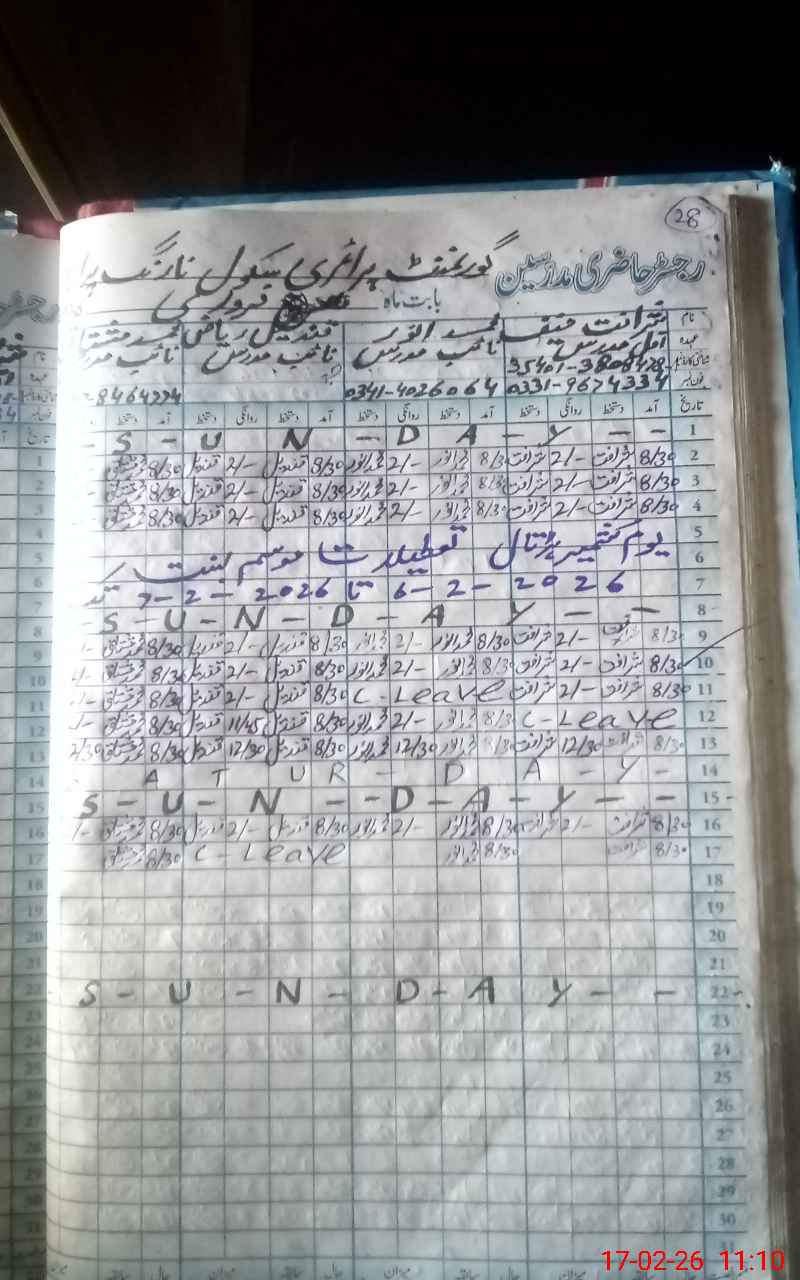 28
رجسٹر حاضری مدرسین گورنمنٹ پرائمری سکول نارنگ
بابت ماہ فروری
نام شرافت محمد انور قندیل ریاض محمد مشتاق
عہدہ مدرس نائب مدرس نائب مدرس نائب مدرس
35401-3808478-
فون نمبر 0331-9674334 0341-4026064 8464774
تاریخ آمد دستخط روانگی دستخط آمد دستخط روانگی دستخط آمد دستخط روانگی دستخط آمد دستخط
1 S - U N - D A - Y - -
2 8/30 شرافت 2/- شرافت 8/30 محمد انور 2/- محمد انور 8/30 قندیل 2/- قندیل 8/30 محمد مشتاق -
3 8/30 شرافت 2/- شرافت 8/30 محمد انور 2/- محمد انور 8/30 قندیل 2/- قندیل 8/30 محمد مشتاق -
4 8/30 شرافت 2/- شرافت 8/30 محمد انور 2/- محمد انور 8/30 قندیل 2/- قندیل 8/30 محمد مشتاق -
5 یوم کشمیر تعطیلات موسم بسنت
6
7 6-2-2026 تا 7-2-2026 تک
8 S - U - N - D - A Y - -
9 8/30 شرافت 2/- شرافت 8/30 محمد انور 2/- محمد انور 8/30 قندیل 2/- قندیل 8/30 محمد مشتاق -
10 8/30 شرافت 2/- شرافت 8/30 محمد انور 2/- محمد انور 8/30 قندیل 2/- قندیل 8/30 محمد مشتاق -
11 8/30 شرافت 2/- شرافت C-Leave 8/30 قندیل 2/- قندیل 8/30 محمد مشتاق -
12 C-Leave 8/30 محمد انور 2/- محمد انور 8/30 قندیل 11/45 قندیل 8/30 محمد مشتاق -
13 8/30 شرافت 12/30 شرافت 8/30 محمد انور 12/30 محمد انور 8/30 قندیل 12/30 قندیل 8/30 محمد مشتاق 2/30
14 A T U R - D A - Y -
15 S - U - N - - D - A - Y - -
16 8/30 شرافت 2/- شرافت 8/30 محمد انور 2/- محمد انور 8/30 قندیل 2/- قندیل 8/30 محمد مشتاق -
17 8/30 شرافت 8/30 محمد انور C-Leave 8/30 محمد مشتاق
18
19
20
21
22 S - U - N - D - A Y - -
23
24
25
26
27
28
29
30
31
17-02-26 11:10